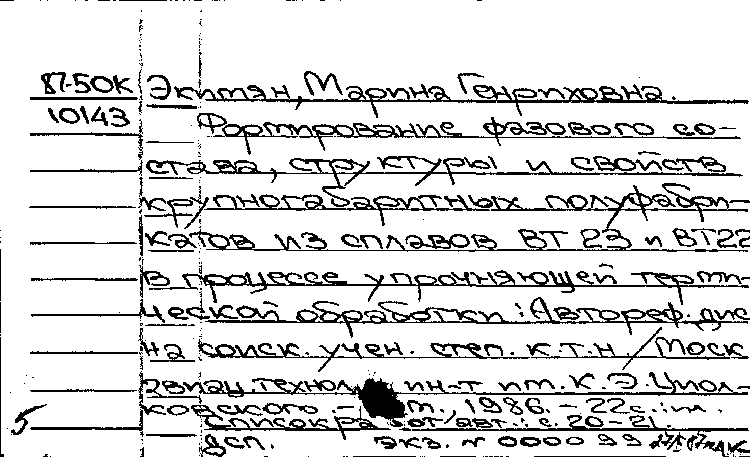 87-50К Экимян, Марина Генриховна.
10143
Формирование фазового со-
става, структуры и свойств
крупногабаритных полуфабри-
катов из сплавов ВТ 23 и ВТ22
в процессе упрочняющей терми-
ческой обработки : Автореф. дис
на соиск. учен. степ. к.т.н / Моск
авиац. технол. ин-т им. К. Э. Циол-
ковского. - М., 1986. - 22 с.: ил.
5 Список работ авт.: с. 20-21.
дсп. экз. N 000099